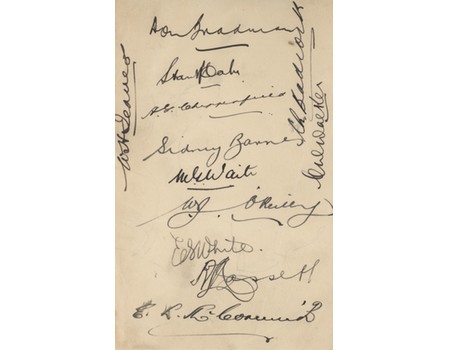 Don Bradman
Stan McCabe
A. G. Chipperfield
Sidney Barnes
M. G. Waite
W. J. O'Reilly
E. S. White.
A. L. Hassett
E. L. McCormick
W. H. Jeanes
C. L. Badcock
C. W. Walker